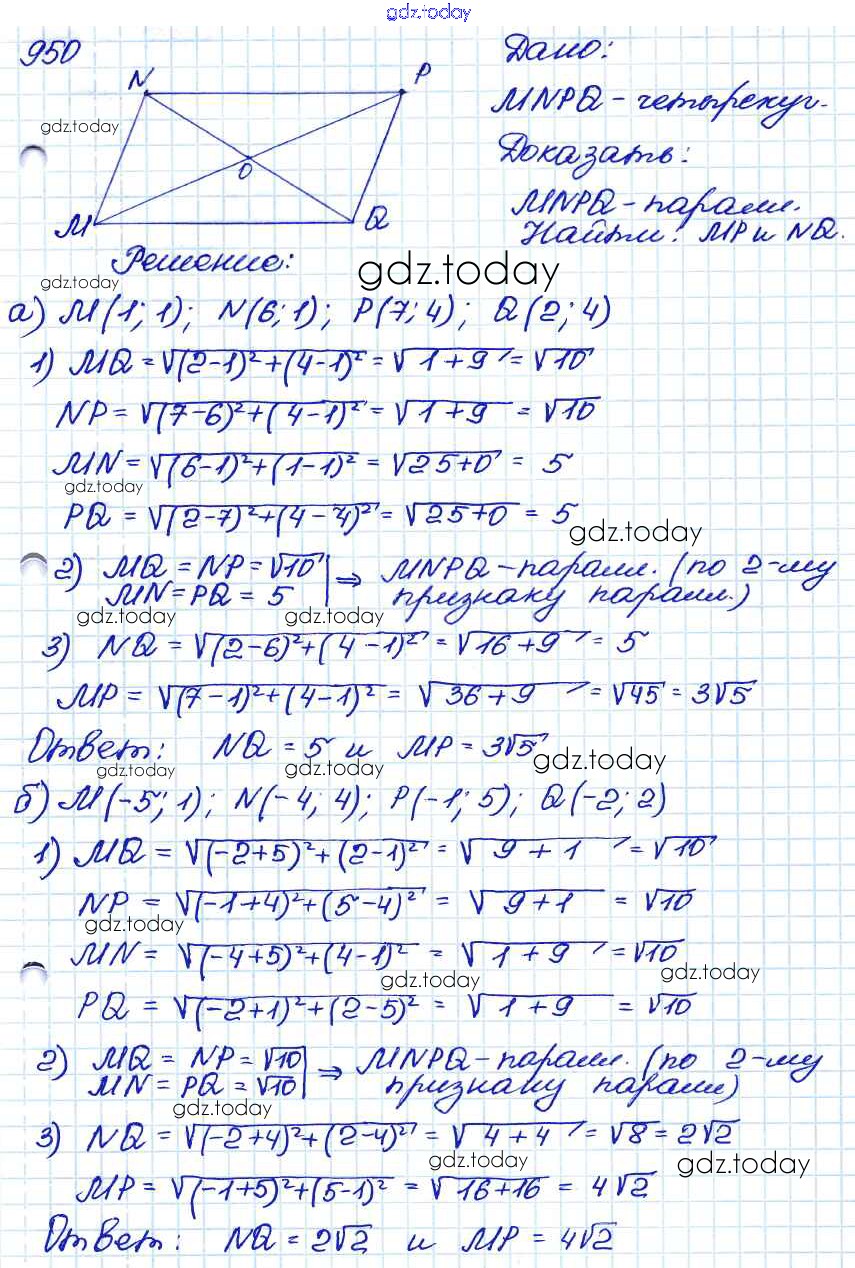 gdz.today
950
Дано:
N P
MNPQ - четырекуг.
gdz.today
Доказать:
O
MNPQ - паралл.
M Q
Найти: MP и NQ.
Решение:
gdz.today gdz.today
а) M(1; 1); N(6; 1); P(7; 4); Q(2; 4)
1) MQ = √(2-1)²+(4-1)² = √1+9 = √10
NP = √(7-6)²+(4-1)² = √1+9 = √10
MN = √(6-1)²+(1-1)² = √25+0 = 5
gdz.today
PQ = √(2-7)²+(4-4)² = √25+0 = 5
gdz.today
2) MQ = NP = √10 | ⇒ MNPQ - паралл. (по 2-му
MN = PQ = 5 | признаку паралл.)
gdz.today gdz.today
3) NQ = √(2-6)²+(4-1)² = √16+9 = 5
MP = √(7-1)²+(4-1)² = √36+9 = √45 = 3√5
Ответ: NQ = 5 и MP = 3√5
gdz.today gdz.today gdz.today
б) M(-5; 1); N(-4; 4); P(-1; 5); Q(-2; 2)
1) MQ = √(-2+5)²+(2-1)² = √9+1 = √10
NP = √(-1+4)²+(5-4)² = √9+1 = √10
gdz.today
MN = √(-4+5)²+(4-1)² = √1+9 = √10
gdz.today gdz.today
PQ = √(-2+1)²+(2-5)² = √1+9 = √10
2) MQ = NP = √10 | ⇒ MNPQ - паралл. (по 2-му
MN = PQ = √10 | признаку паралл)
gdz.today
3) NQ = √(-2+4)²+(2-4)² = √4+4 = √8 = 2√2
gdz.today gdz.today
MP = √(-1+5)²+(5-1)² = √16+16 = 4√2
Ответ: NQ = 2√2 и MP = 4√2